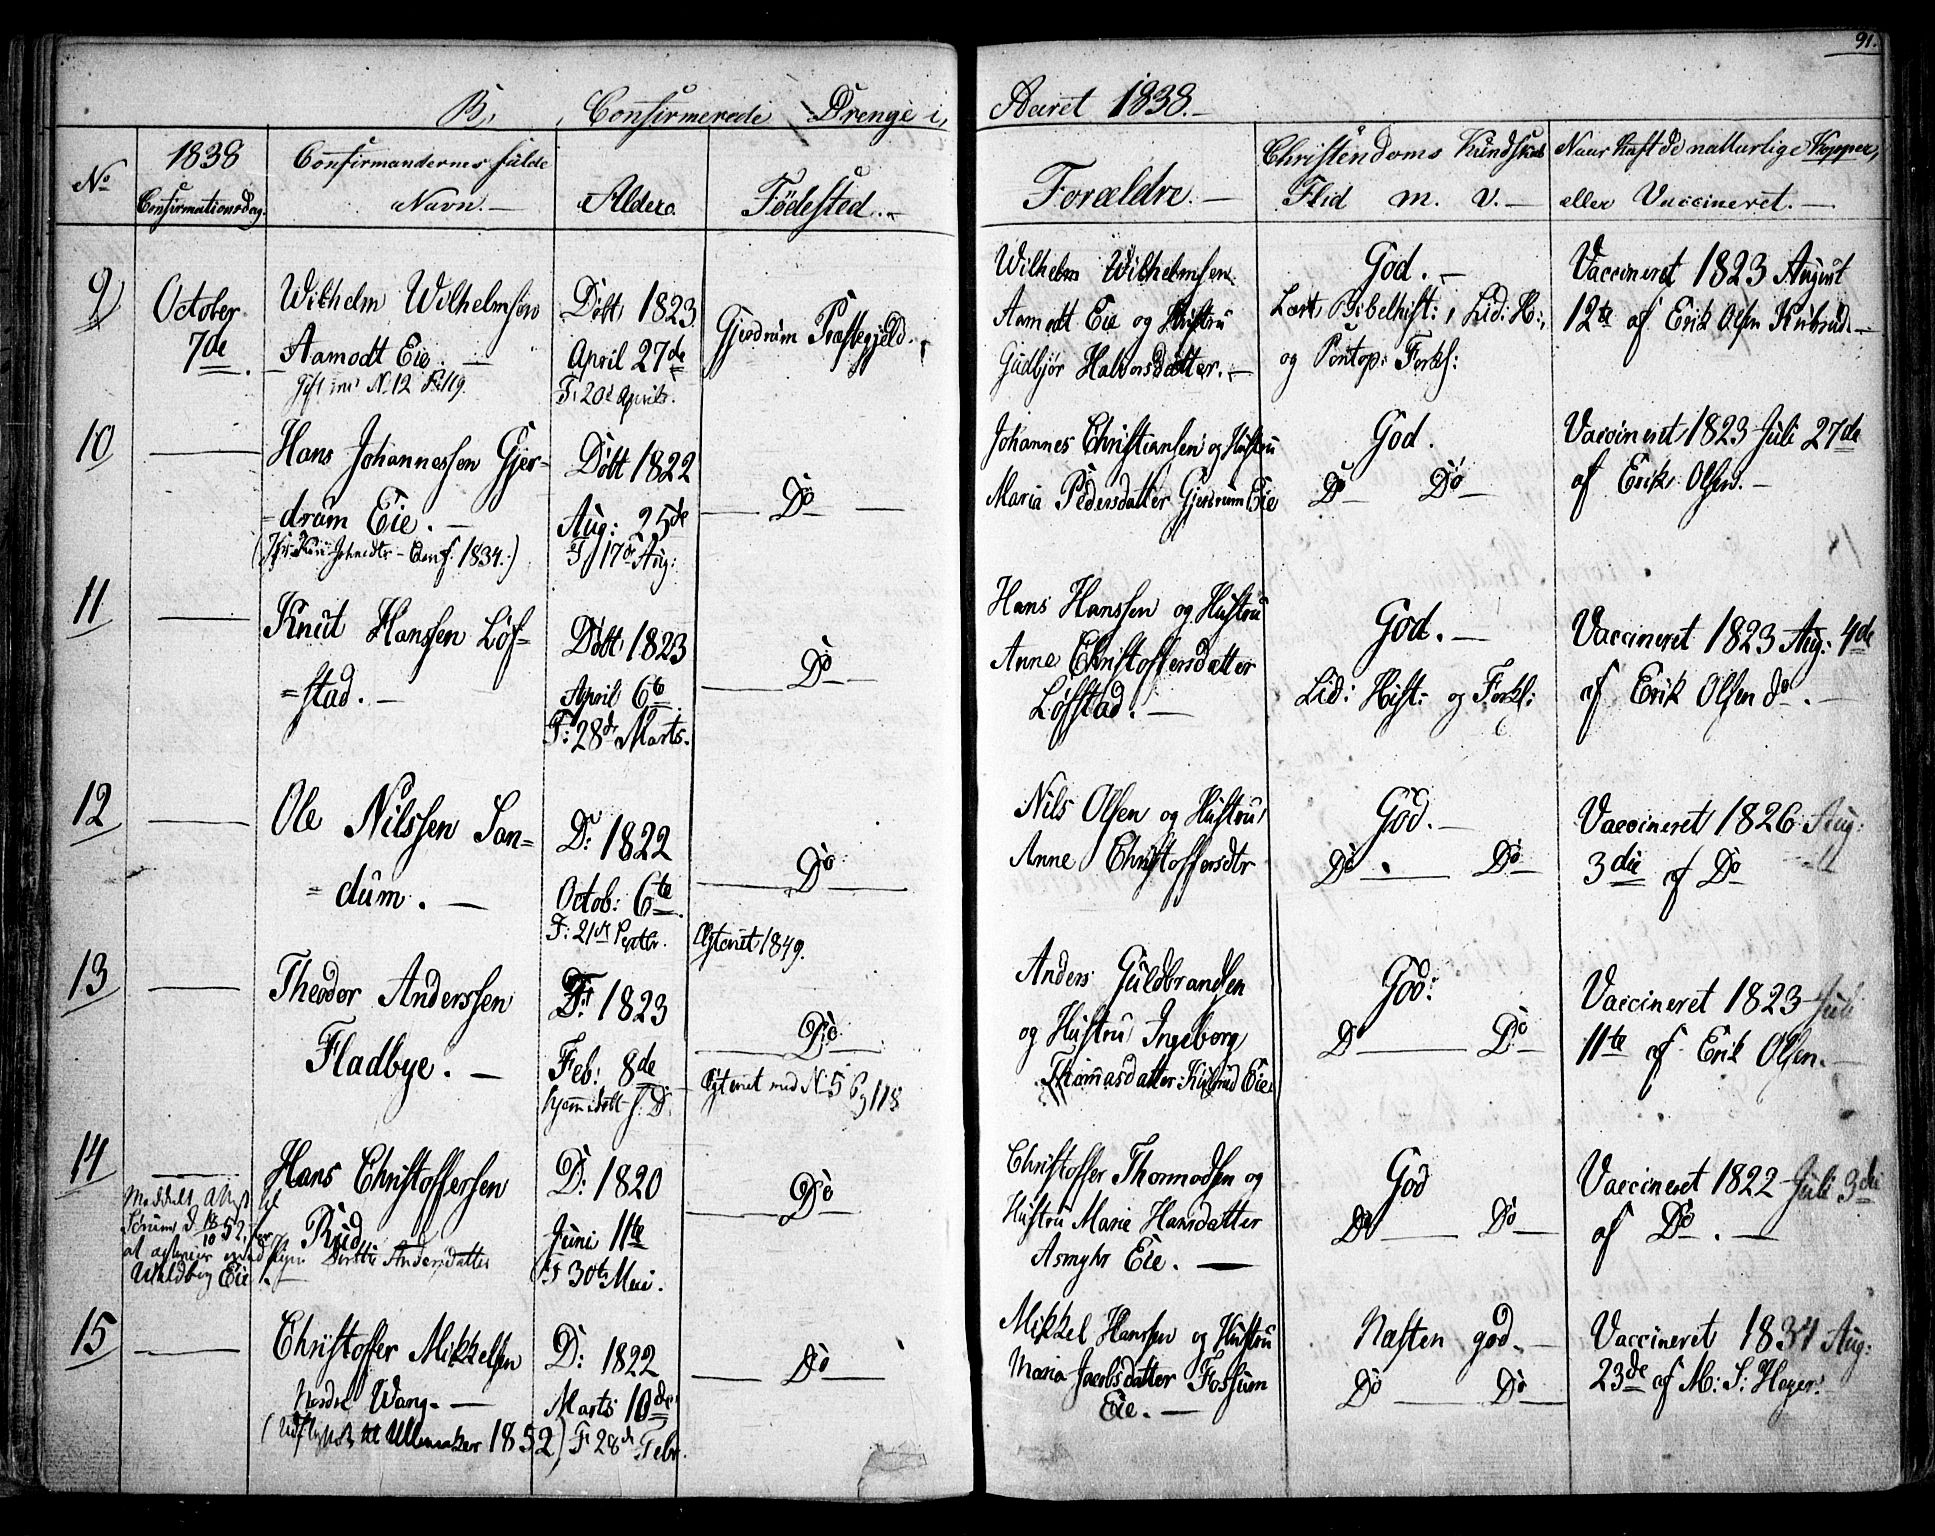 91.
B, Confirmerede Drenge i, Aaret 1838.
No
1838
Confirmationsdag.
Confirmandernes fulde
Navn.
Alder.
Fødested.
Forældre.
Christendoms Kundskab
Flid m. v.
Naar haft de naturlige Kopper,
eller Vaccineret.
9)
October
7de
Wilhelm Wilhelmsen
Aamodt Eie.
Døbt 1823
April 27de
F: 20de Aprils.
Gjerdrum Præstegjeld.
Wilhelm Wilhelmsen
Aamodt Eie og Hustru
Gudbjør Halvorsdatter.
God.
Læst Bibelhist:, Lid: H:,
og Pontop: Forkl:
Vaccineret 1823 August
12te af Erik Olsen Kulsrud
10
Hans Johannessen Gjer-
=drum Eie.
Døbt 1822
Aug: 25de
F. 17de Aug:
Do
Johannes Christiansen og Hustru
Maria Pedersdatter Gjerdrum Eie
God.
Do Do
Vaccineret 1823 Juli 27de
af Erik Olsen.
11
Knut Hanssen Løf-
=stad.
Døbt 1823
April 6te
F: 28de Marts.
Do
Hans Hanssen og Hustru
Anne Christoffersdatter
Løfstad.
God.
Lid: Hist: og Forkl:
Vaccineret 1823 Aug: 4de
af Erik Olsen do.
12
Ole Nilssen San-
=dum.
D: 1822
Octob: 6te
F: 21de Septbr.
Do
Ægteviet 1849.
Nils Olsen og Hustru
Anne Christoffersdtr
God.
Do Do
Vaccineret 1826 Aug:
3die af Do
13
Theodor Anderssen
Fladbye.
F: 1823
Feb: 8de
hjemmedøbt s: D.
Do
Ægteviet med N. 5
Anders Guldbrandsen
og Hustru Ingeborg
Thomasdatter Kulsrud Eie
God:
Do Do
Vaccineret 1823 Juli
11te af Erik Olsen.
14
Meddelt Attest til
Sørum d. 18/10 52, for
at ægtevies med Pigen Dorthe Andersdatter
Waldbye Eie.
Hans Christoffersen
Rud
D: 1820
Juni 11te
F 30te Mai.
Do
Christoffer Thormodsen og
Hustru Marie Hansdatter
Asmyhr Eie.
God
Do Do
Vaccineret 1822 Juli 3die
af Do.
15
Christoffer Mikkelsen
Nordre Wang.
(Udflyttet til Ullensaker 1852)
D: 1822
Marts 10de
F 28de Febr.
Do
Mikkel Hanssen og Hustru
Maria Jacobsdatter Fossum
Eie.
Næsten god.
Do Do
Vaccineret 1834 Aug:
23de af M: S: Høyer.